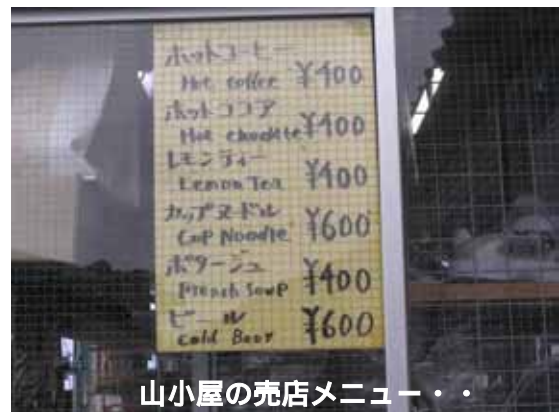 ホットコーヒー
Hot coffee ¥400
ホットココア
Hot chocolate ¥400
レモンティー
Lemon Tea ¥400
カップヌードル
Cup Noodle ¥600
ポタージュ
French Soup ¥400
ビール
Cold Beer ¥600
山小屋の売店メニュー・・